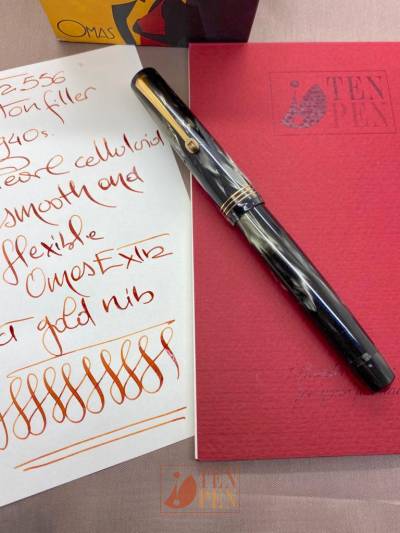 OMAS
TEN
PEN
2.556
ton filler
940s.
earl celluloid
smooth and
flexible
Omas Extra
gold nib
TEN
PEN